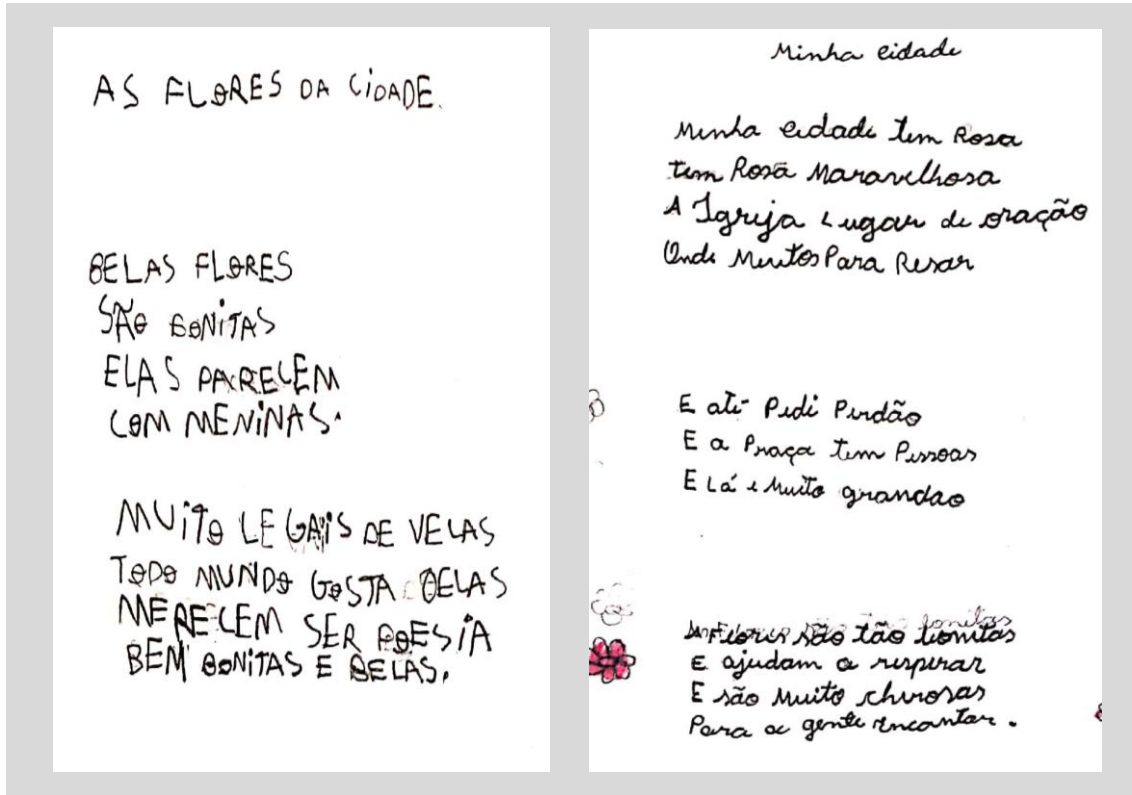 AS FLORES DA CIDADE.
BELAS FLORES
SÃO BONITAS
ELAS PARECEM
COM MENINAS.
MUITO LEGAIS DE VELAS
TODO MUNDO GOSTA DELAS
MERECEM SER POESIA
BEM BONITAS E BELAS.
Minha cidade
Minha cidade tem Rosa
tem Rosa Maravelhosa
A Igreja Lugar de oração
Onde Muitos Para Resar
E até Pedi Perdão
E a Praça tem Pessoas
E Lá e Muito grandao
As Flores são tão bonitas
E ajudam a respirar
E são Muito chirosas
Para a gente encantar.